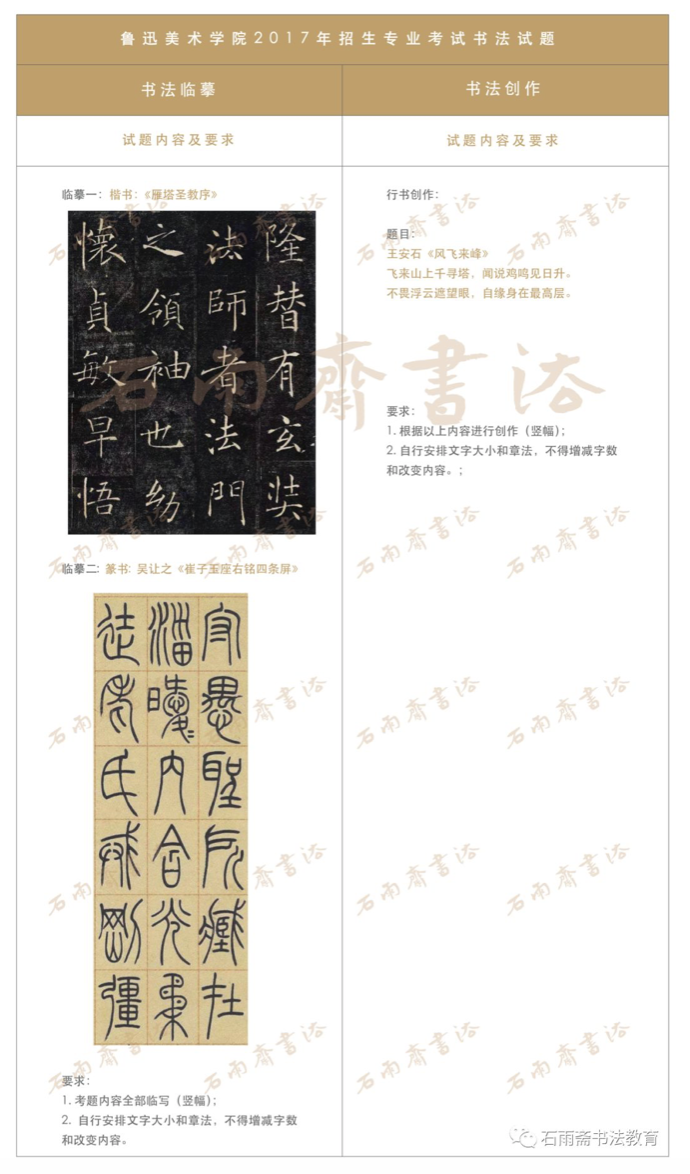 鲁迅美术学院2017年招生专业考试书法试题
书法临摹
试题内容及要求
临摹一：楷书：《雁塔圣教序》
隆替有玄奘
法師者法門
之領袖也幼
懷貞敏早悟
临摹二: 篆书: 吴让之《崔子玉座右铭四条屏》
守愚聖所臧在
淄曖〻內含光柔
徒老氏誡剛彊
要求：
1. 考题内容全部临写（竖幅）；
2. 自行安排文字大小和章法，不得增减字数
和改变内容。
书法创作
试题内容及要求
行书创作：
题目：
王安石《风飞来峰》
飞来山上千寻塔，闻说鸡鸣见日升。
不畏浮云遮望眼，自缘身在最高层。
要求：
1. 根据以上内容进行创作（竖幅）；
2. 自行安排文字大小和章法，不得增减字数
和改变内容。；
石雨齋書法
石雨斋书法教育